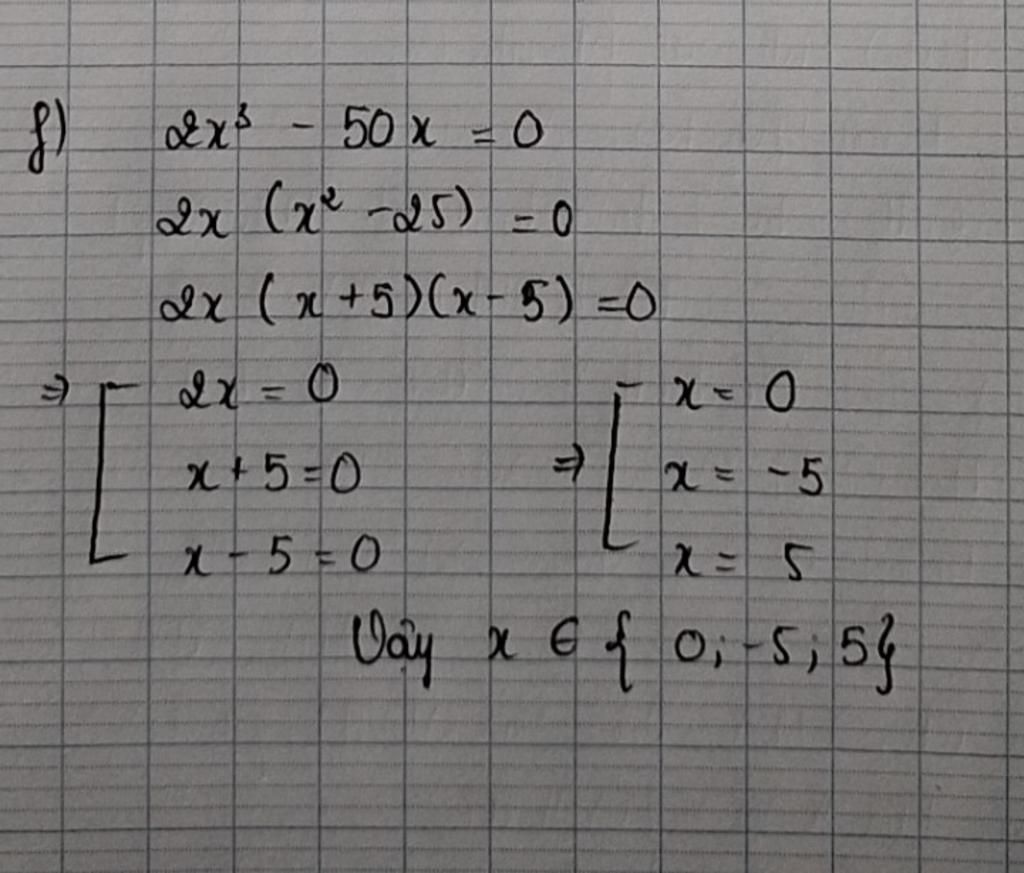 f) 2x³ - 50x = 0
2x (x² - 25) = 0
2x (x + 5)(x - 5) = 0
⇒ [ 2x = 0 ⇒ [ x = 0
x + 5 = 0 x = -5
x - 5 = 0 x = 5
Vậy x ∈ { 0; -5; 5}